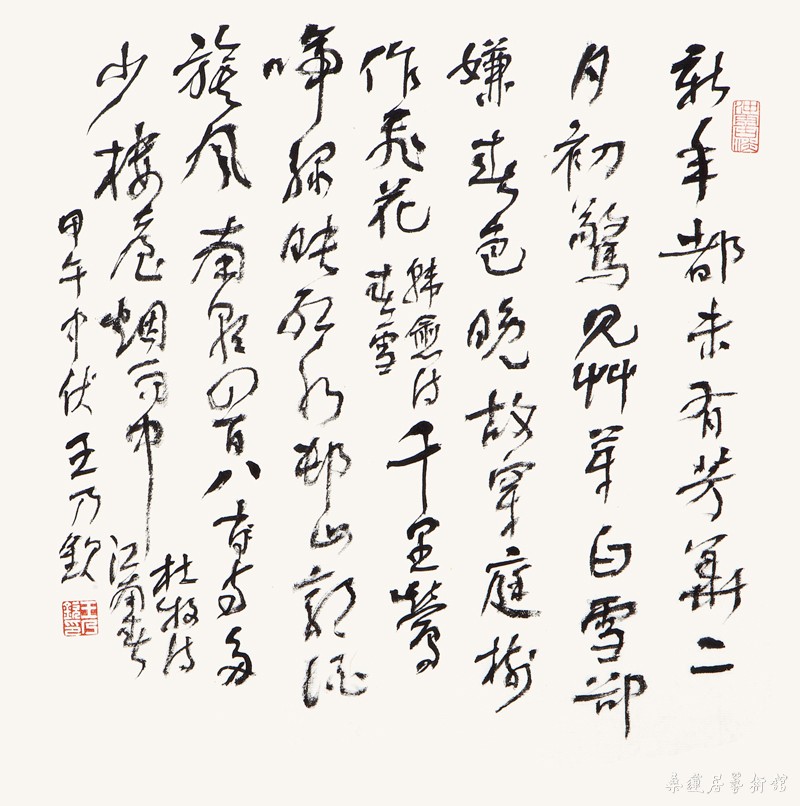 新年都未有芳華二
月初驚見艸芽白雪卻
嫌春色晚故穿庭樹
作飛花
韓愈詩
春雪
千里鶯
啼綠映紅水邨山郭酒
旗風南朝四百八十寺多
少樓臺烟雨中
杜牧詩
江南春
甲午中伏王乃欽
桑蓮居藝術館